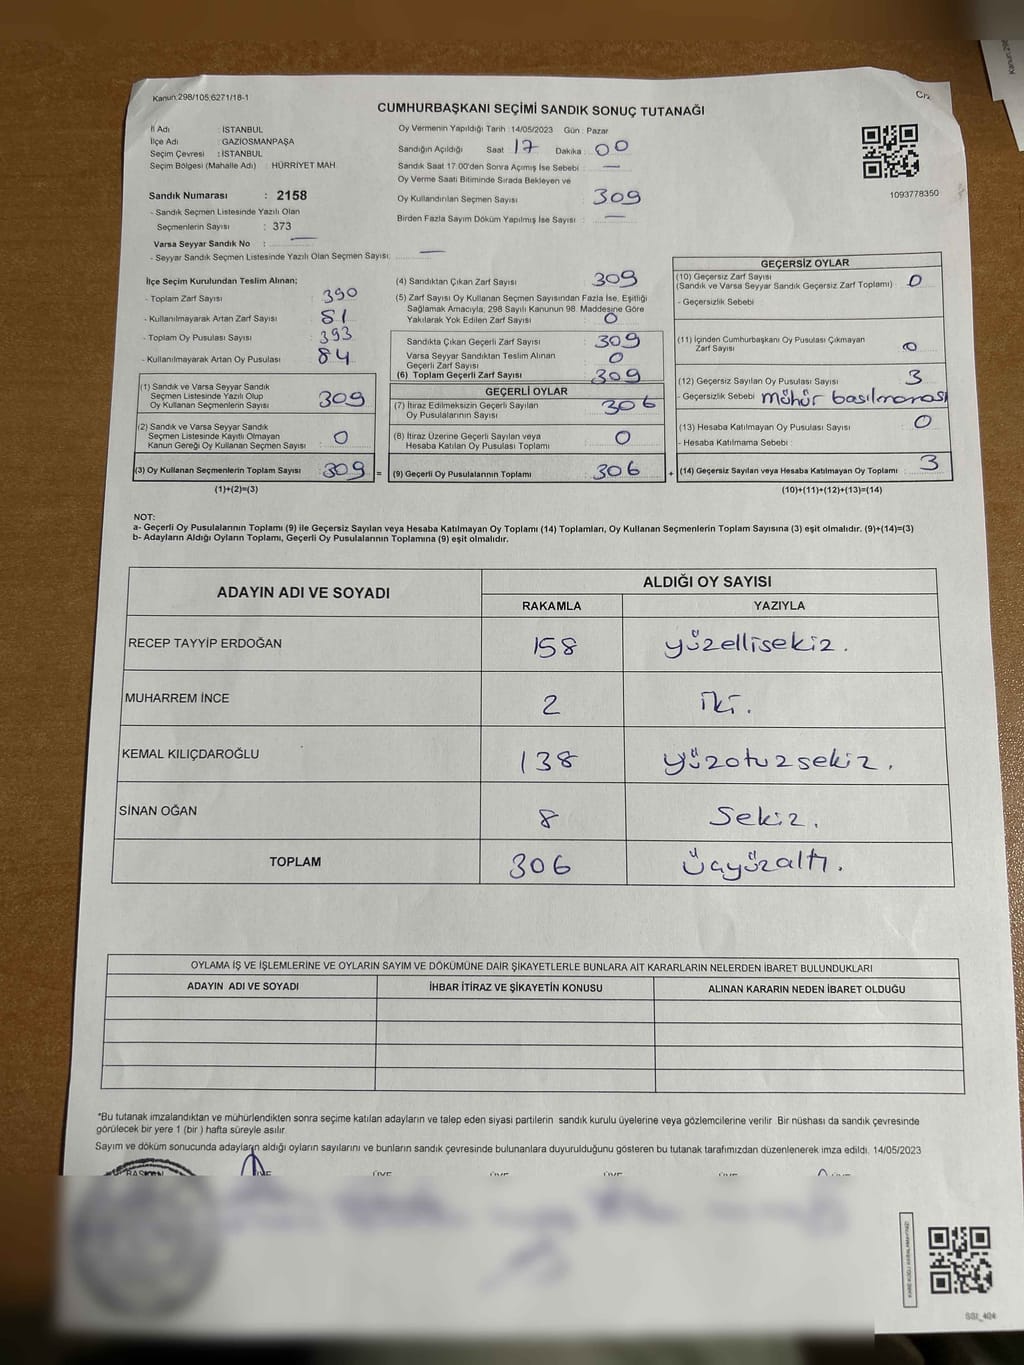 Kanun:298/105,6271/18-1
CUMHURBAŞKANI SEÇİMİ SANDIK SONUÇ TUTANAĞI
İl Adı : İSTANBUL
İlçe Adı : GAZİOSMANPAŞA
Seçim Çevresi : İSTANBUL
Seçim Bölgesi (Mahalle Adı) : HÜRRİYET MAH.
Sandık Numarası : 2158
- Sandık Seçmen Listesinde Yazılı Olan
Seçmenlerin Sayısı : 373
Varsa Seyyar Sandık No : —
- Seyyar Sandık Seçmen Listesinde Yazılı Olan Seçmen Sayısı: —
Oy Vermenin Yapıldığı Tarih :14/05/2023 Gün : Pazar
Sandığın Açıldığı Saat 17 Dakika : 00
Sandık Saat 17:00'den Sonra Açımış İse Sebebi : —
Oy Verme Saati Bitiminde Sırada Bekleyen ve
Oy Kullandırılan Seçmen Sayısı : 309
Birden Fazla Sayım Döküm Yapılmış İse Sayısı : —
1093778350
İlçe Seçim Kurulundan Teslim Alınan;
- Toplam Zarf Sayısı : 390
- Kullanılmayarak Artan Zarf Sayısı : 81
- Toplam Oy Pusulası Sayısı : 393
- Kullanılmayarak Artan Oy Pusulası : 84
(1) Sandık ve Varsa Seyyar Sandık
Seçmen Listesinde Yazılı Olup
Oy Kullanan Seçmenlerin Sayısı : 309
(2) Sandık ve Varsa Seyyar Sandık
Seçmen Listesinde Kayıtlı Olmayan
Kanun Gereği Oy Kullanan Seçmen Sayısı : 0
(3) Oy Kullanan Seçmenlerin Toplam Sayısı : 309 =
(1)+(2)=(3)
(4) Sandıktan Çıkan Zarf Sayısı : 309
(5) Zarf Sayısı Oy Kullanan Seçmen Sayısından Fazla İse, Eşitliği
Sağlamak Amacıyla, 298 Sayılı Kanunun 98. Maddesine Göre
Yakılarak Yok Edilen Zarf Sayısı : 0
Sandıkta Çıkan Geçerli Zarf Sayısı : 309
Varsa Seyyar Sandıktan Teslim Alınan
Geçerli Zarf Sayısı : 0
(6) Toplam Geçerli Zarf Sayısı : 309
GEÇERLİ OYLAR
(7) İtiraz Edilmeksizin Geçerli Sayılan
Oy Pusulasının Sayısı : 306
(8) İtiraz Üzerine Geçerli Sayılan veya
Hesaba Katılan Oy Pusulası Toplamı : 0
(9) Geçerli Oy Pusulalarının Toplamı : 306 +
GEÇERSİZ OYLAR
(10) Geçersiz Zarf Sayısı
(Sandık ve Varsa Seyyar Sandık Geçersiz Zarf Toplamı) : 0
- Geçersizlik Sebebi :
(11) İçinden Cumhurbaşkanı Oy Pusulası Çıkmayan
Zarf Sayısı : 0
(12) Geçersiz Sayılan Oy Pusulası Sayısı : 3
- Geçersizlik Sebebi : mühür basılmaması
(13) Hesaba Katılmayan Oy Pusulası Sayısı : 0
- Hesaba Katılmama Sebebi :
(14) Geçersiz Sayılan veya Hesaba Katılmayan Oy Toplamı : 3
(10)+(11)+(12)+(13)=(14)
NOT:
a- Geçerli Oy Pusulalarının Toplamı (9) ile Geçersiz Sayılan veya Hesaba Katılmayan Oy Toplamı (14) Toplamları, Oy Kullanan Seçmenlerin Toplam Sayısına (3) eşit olmalıdır. (9)+(14)=(3)
b- Adayların Aldığı Oyların Toplamı, Geçerli Oy Pusulalarının Toplamına (9) eşit olmalıdır.
ADAYIN ADI VE SOYADI ALDIĞI OY SAYISI
RAKAMLA YAZIYLA
RECEP TAYYİP ERDOĞAN 158 yüzellisekiz.
MUHARREM İNCE 2 iki.
KEMAL KILIÇDAROĞLU 138 yüzotuzsekiz.
SİNAN OĞAN 8 Sekiz.
TOPLAM 306 üçyüzaltı.
OYLAMA İŞ VE İŞLEMLERİNE VE OYLARIN SAYIM VE DÖKÜMÜNE DAİR ŞİKAYETLERLE BUNLARA AİT KARARLARIN NELERDEN İBARET BULUNDUKLARI
ADAYIN ADI VE SOYADI İHBAR İTİRAZ VE ŞİKAYETİN KONUSU ALINAN KARARIN NEDEN İBARET OLDUĞU
*Bu tutanak imzalandıktan ve mühürlendikten sonra seçime katılan adayların ve talep eden siyasi partilerin sandık kurulu üyelerine veya gözlemcilerine verilir. Bir nüshası da sandık çevresinde
görülecek bir yere 1 (bir ) hafta süreyle asılır.
Sayım ve döküm sonucunda adayların aldığı oyların sayılarını ve bunların sandık çevresinde bulunanlara duyurulduğunu gösteren bu tutanak tarafımızdan düzenlenerek imza edildi. 14/05/2023
SSI_404